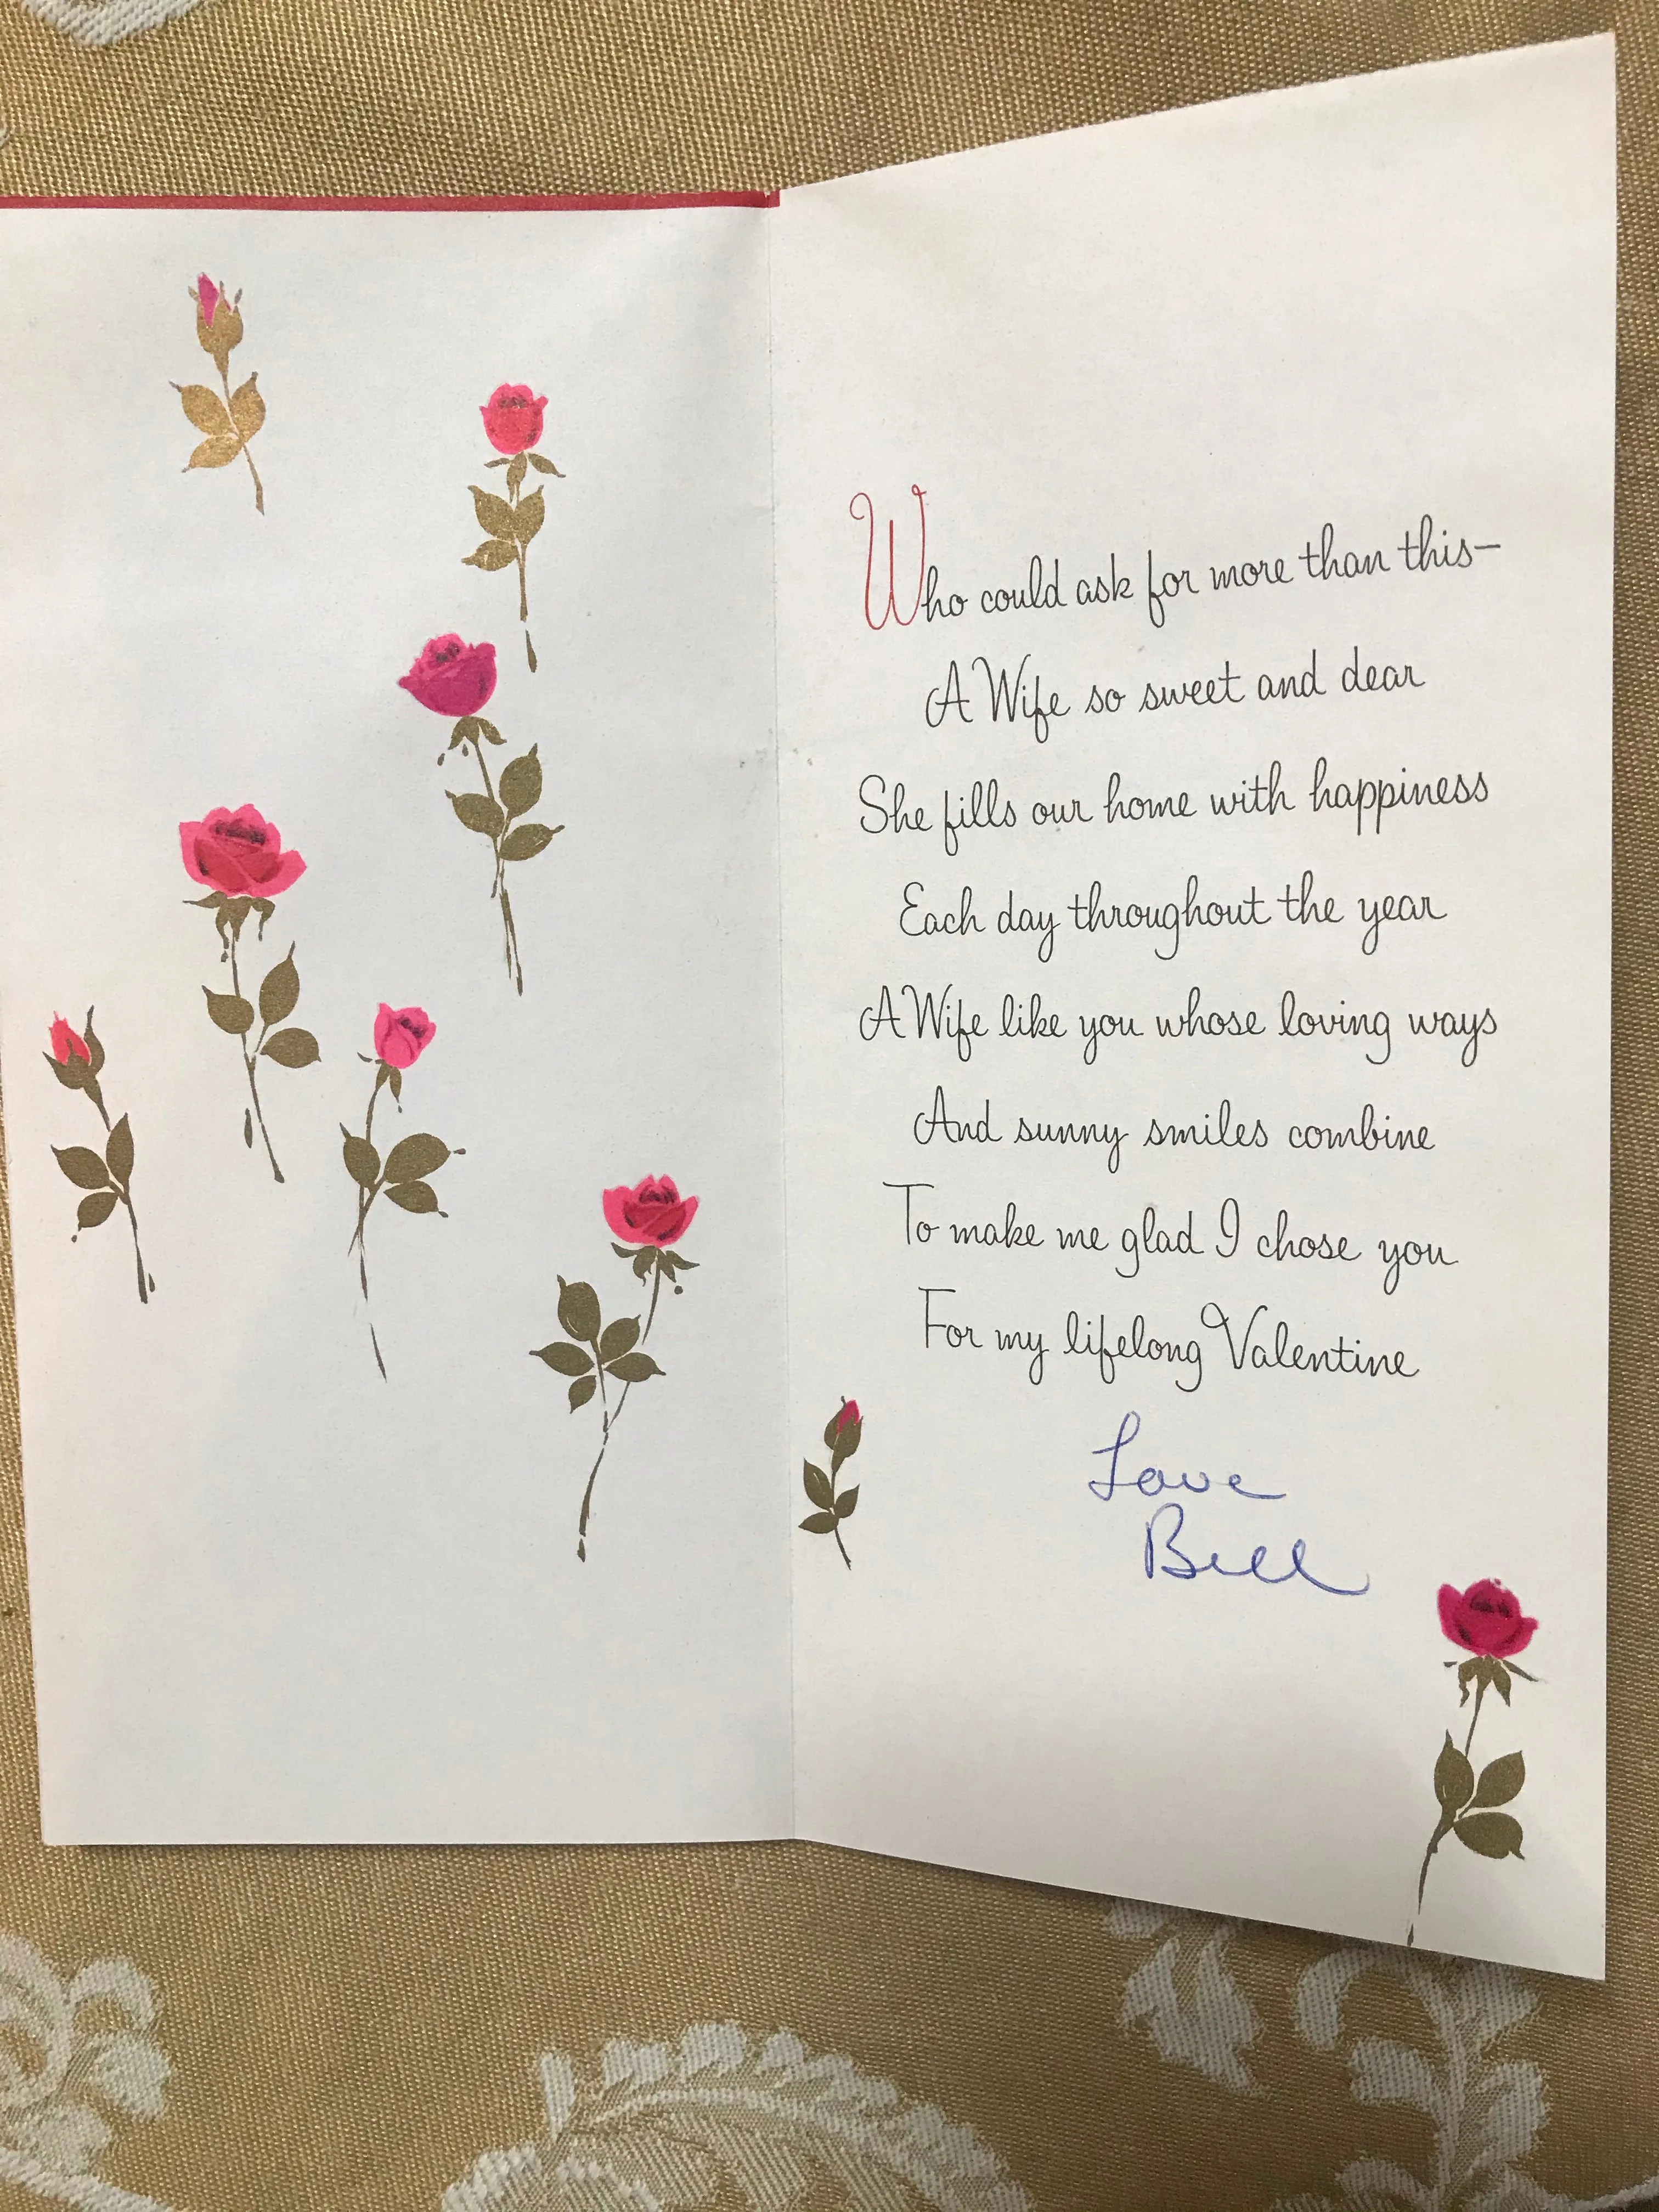 Who could ask for more than this—
A Wife so sweet and dear
She fills our home with happiness
Each day throughout the year
A Wife like you whose loving ways
And sunny smiles combine
To make me glad I chose you
For my lifelong Valentine
Love
Bill